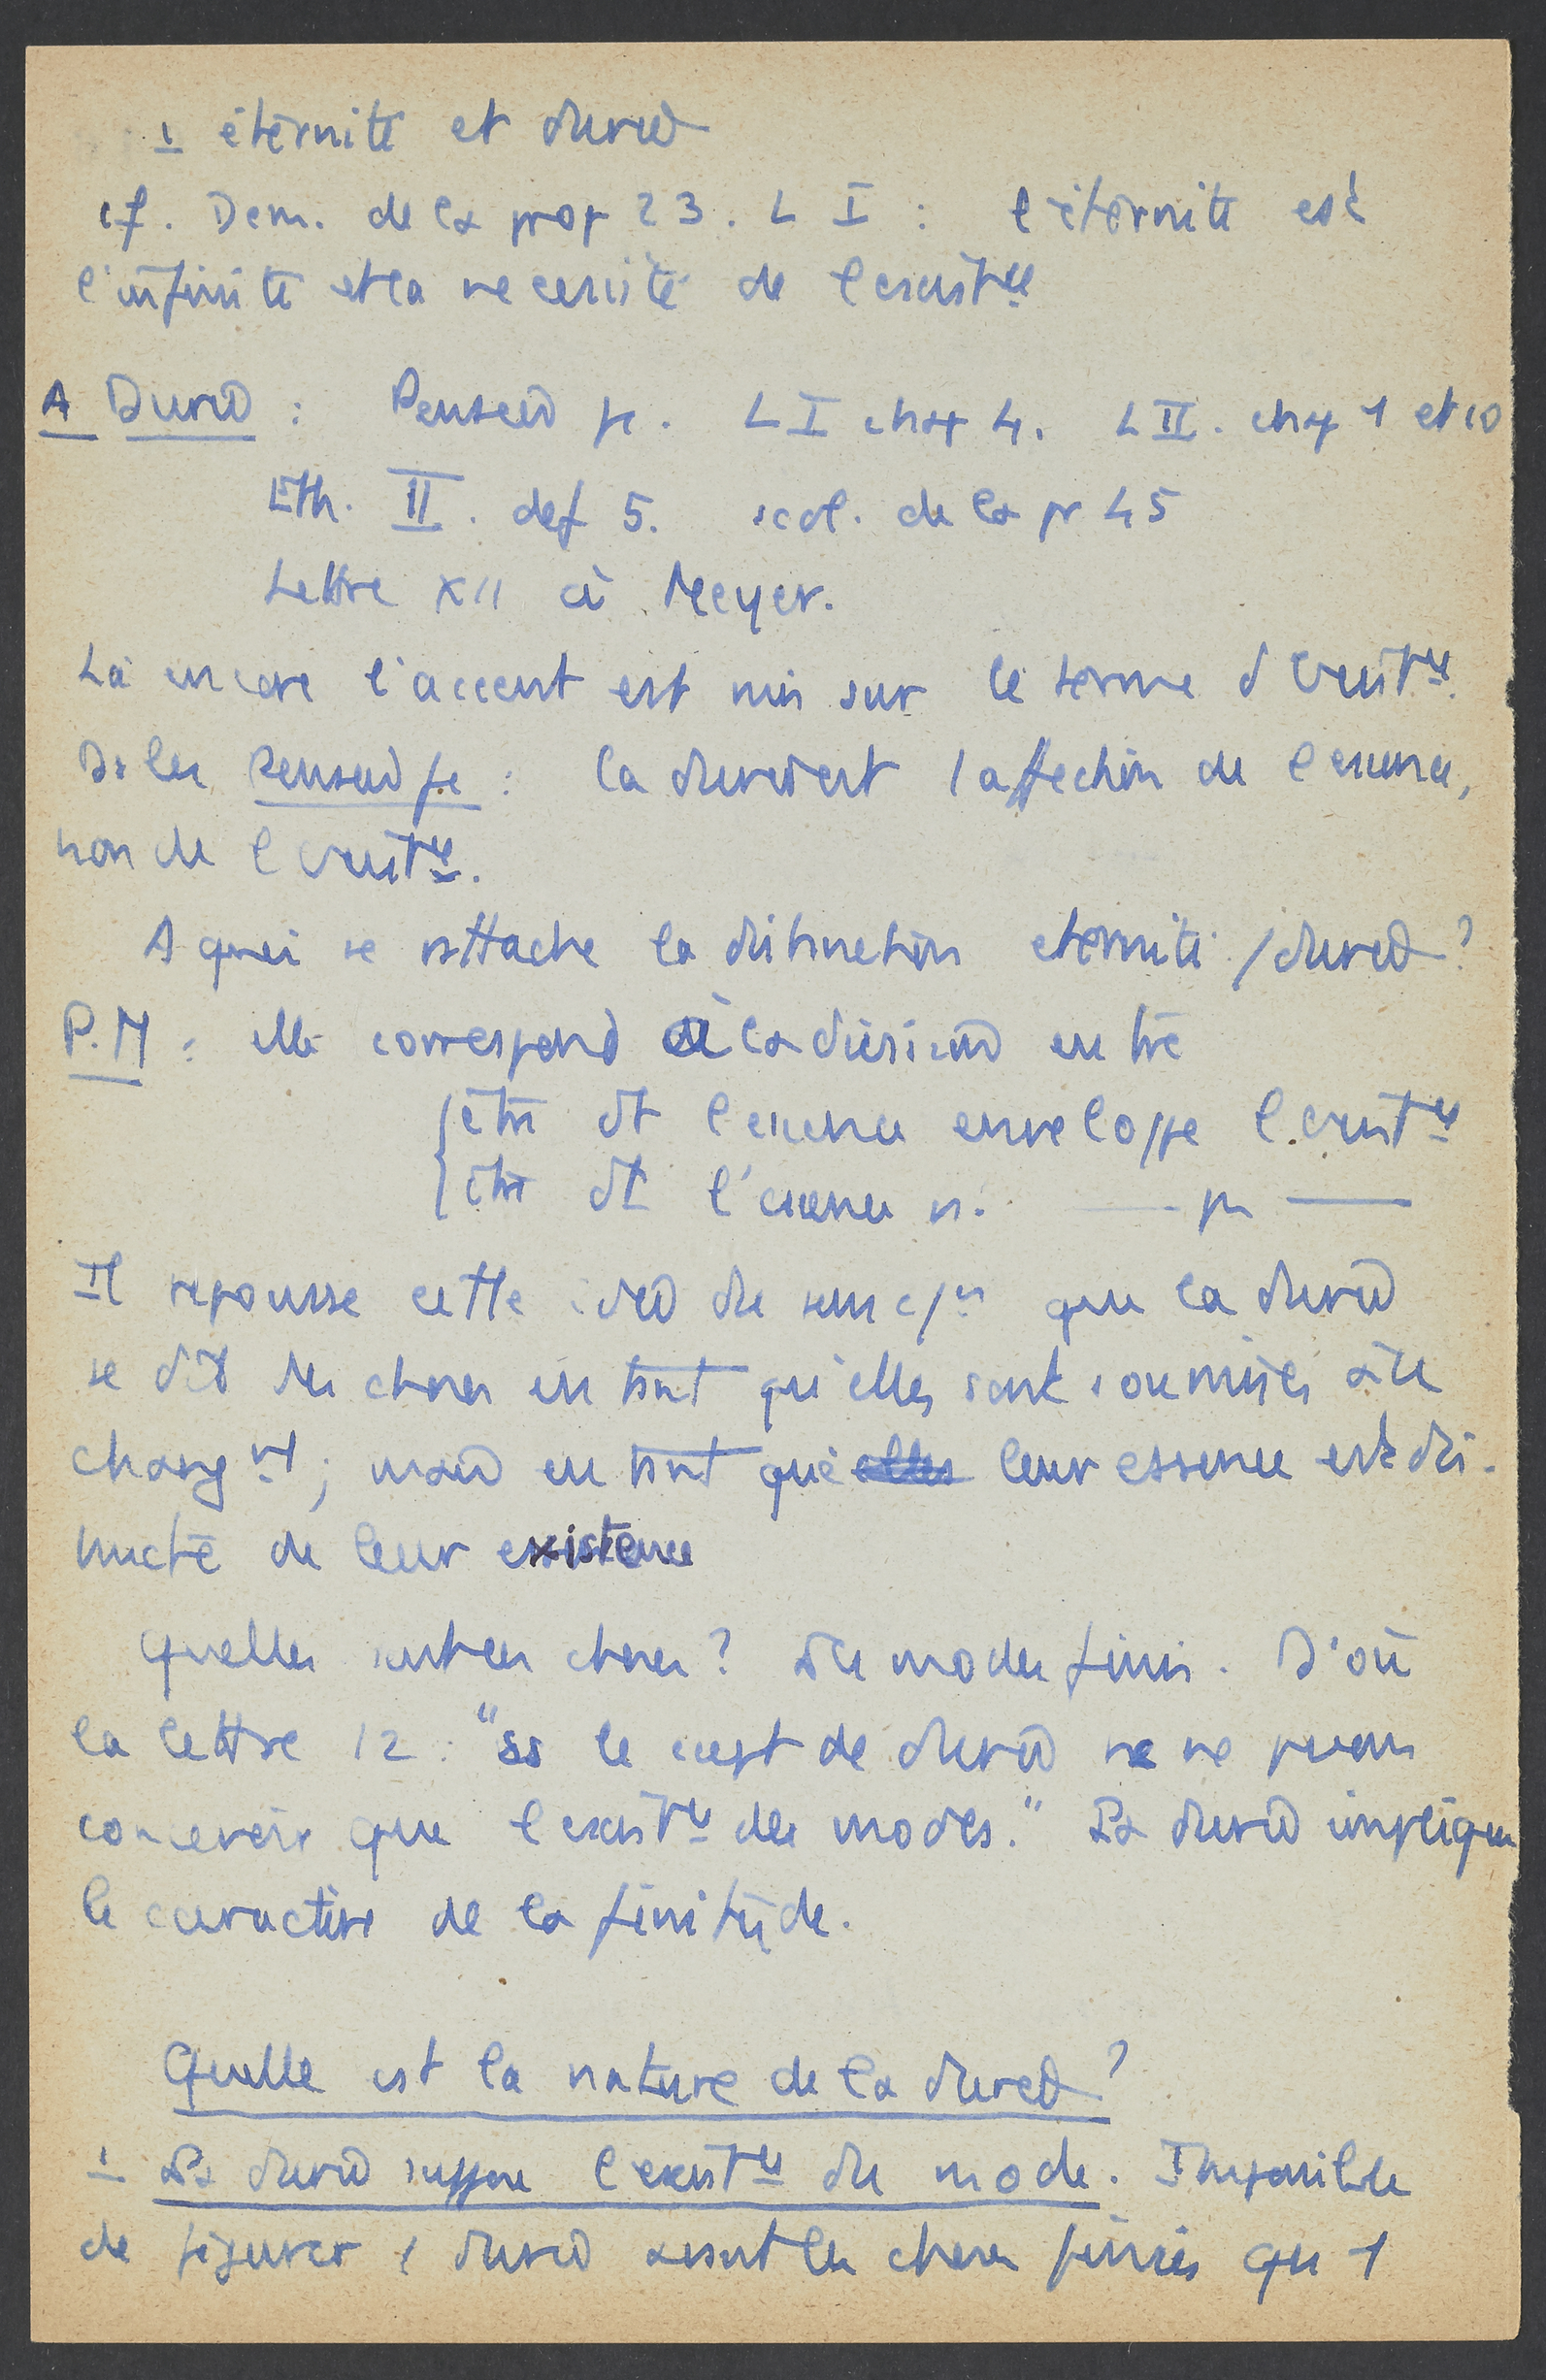 1 éternité et durée
cf. Dem. de la prop 23. L I : l'éternité est
l'infinité et la necessité de l'existce
A Durée : Pensées . L I chap 4. L II. chap 1 et 10
Eth. II. def 5. scol. de la pr 45
Lettre XII à Meyer.
Là encore l'accent est mis sur le terme d'existce.
Ds les Pensées : la durée est 1 affection de l'essence,
non de l'existce.
A quoi se rattache la distinction eternité / durée ?
P.M : elle correspond à la division entre
être dt l'essence enveloppe l'existce
être dt l'essence n. —— pas ——
Il repousse cette idée du sens que la durée
se dit des choses en tant qu'elles sont soumises à le
changnt ; mais en tant que elles leur essence est dis-
tincte de leur existence
Quelles sont ces choses ? Des modes finis. D'où
la lettre 12 : "ss le cept de durée ns ne pvons
concevoir que l'existce des modes." La durée implique
le caractère de la finitude.
Quelle est la nature de la durée ?
1 La durée suppose l'existce du mode. Impossible
de figurer 1 durée avant les choses finies qui 1